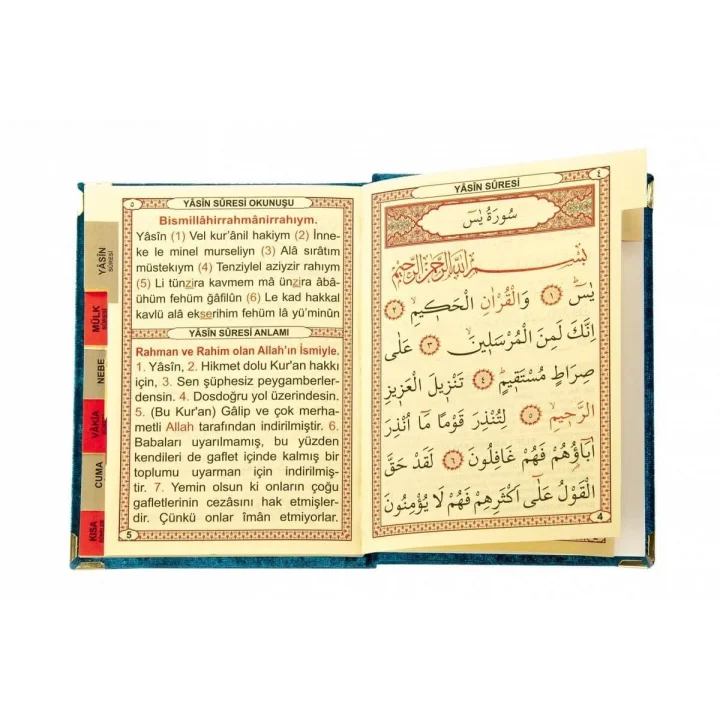 ٤
YÂSİN SÛRESİ
سُورَةُ يٰسٓ
بِسْمِ اللّٰهِ الرَّحْمٰنِ الرَّحِيمِ
يٰسٓ ﴿١﴾ وَالْقُرْاٰنِ الْحَكِيمِ ﴿٢﴾
اِنَّكَ لَمِنَ الْمُرْسَلِينَ ﴿٣﴾ عَلٰى
صِرَاطٍ مُسْتَقِيمٍ ﴿٤﴾ تَنْزِيلَ الْعَزِيزِ
الرَّحِيمِ ﴿٥﴾ لِتُنْذِرَ قَوْمًا مَٓا اُنْذِرَ
اٰبَٓاؤُهُمْ فَهُمْ غَافِلُونَ ﴿٦﴾ لَقَدْ حَقَّ
الْقَوْلُ عَلٰٓى اَكْثَرِهِمْ فَهُمْ لَا يُؤْمِنُونَ
4
٥
YÂSİN SÛRESİ OKUNUŞU
Bismillâhirrahmânirrahıym.
Yâsîn (1) Vel kur'ânil hakiym (2) İnne-
ke le minel murseliyn (3) Alâ sırâtım
müstekıym (4) Tenziylel aziyzir rahıym
(5) Li tünzira kavmem mâ ünzira âbâ-
ühüm fehüm ğâfilûn (6) Le kad hakkal
kavlü alâ ekserihim fehüm lâ yü'minûn
YÂSİN SÛRESİ ANLAMI
Rahman ve Rahim olan Allah'ın İsmiyle.
1. Yâsîn, 2. Hikmet dolu Kur'an hakkı
için, 3. Sen şüphesiz peygamberler-
densin. 4. Dosdoğru yol üzerindesin.
5. (Bu Kur'an) Gâlip ve çok merha-
metli Allah tarafından indirilmiştir. 6.
Babaları uyarılmamış, bu yüzden
kendileri de gaflet içinde kalmış bir
toplumu uyarman için indirilmiş-
tir. 7. Yemin olsun ki onların çoğu
gafletlerinin cezasını hak etmişler-
dir. Çünkü onlar îmân etmiyorlar.
5
YÂSİN
SÛRESİ
MÜLK
SÛRESİ
NEBE
VÂKIA
CUMA
KISA